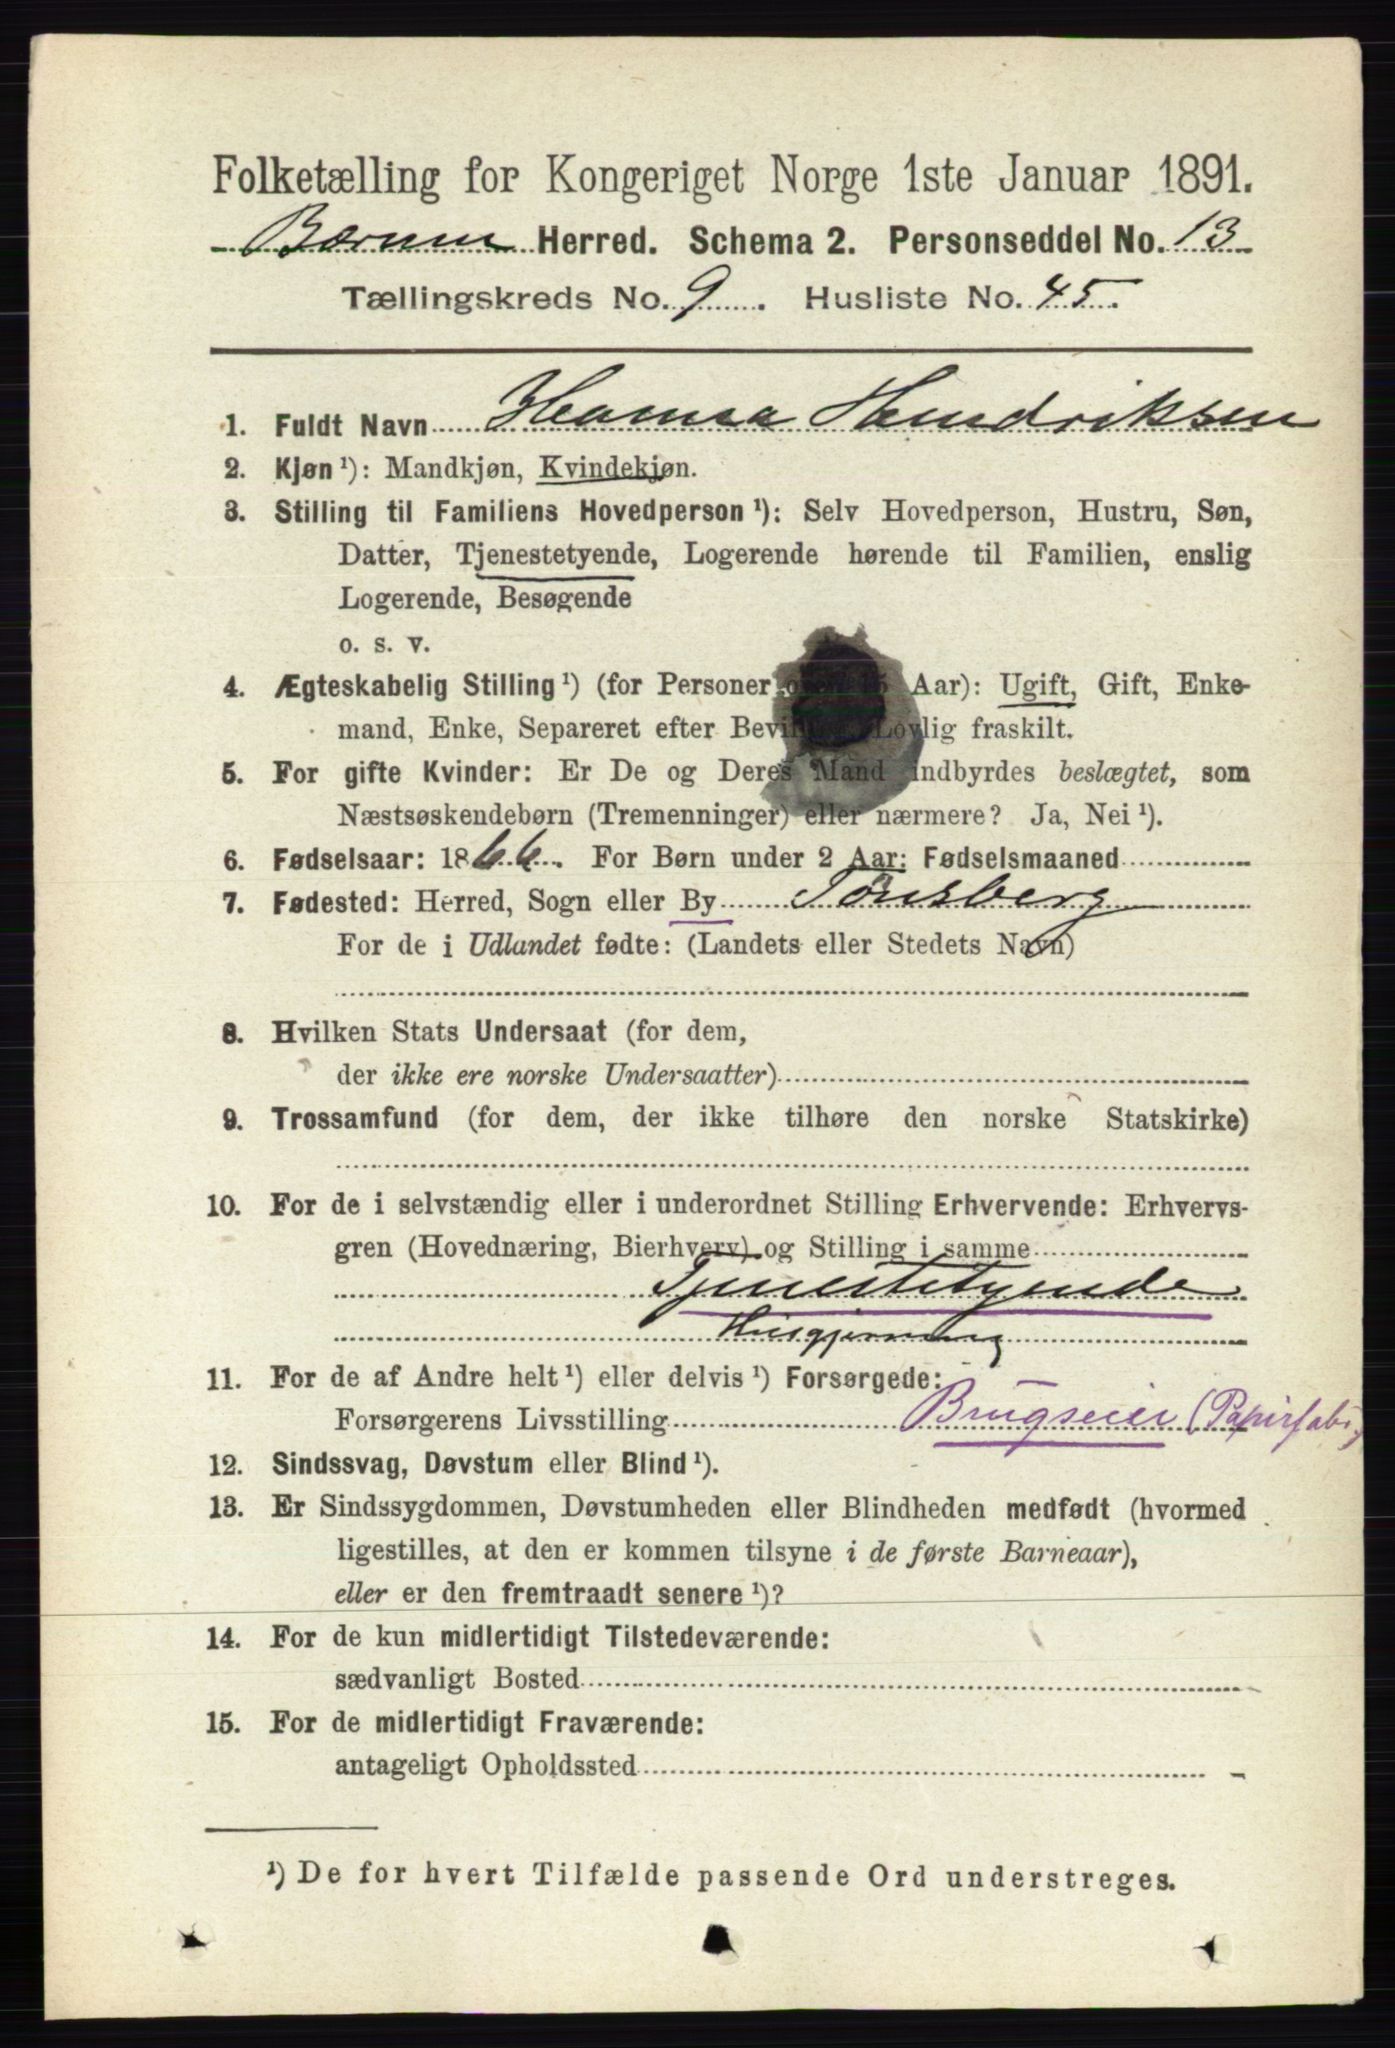 Folketælling for Kongeriget Norge 1ste Januar 1891.
Bærum Herred. Schema 2. Personseddel No. 13
Tællingskreds No. 9. Husliste No. 45.
1. Fuldt Navn Hendriksen
2. Kjøn ¹): Mandkjøn, Kvindekjøn.
3. Stilling til Familiens Hovedperson ¹): Selv Hovedperson, Hustru, Søn,
Datter, Tjenestetyende, Logerende hørende til Familien, enslig
Logerende, Besøgende
o. s. v.
4. Ægteskabelig Stilling ¹) (for Personer over 15 Aar): Ugift, Gift, Enke-
mand, Enke, Separeret efter Bevilling, Lovlig fraskilt.
5. For gifte Kvinder: Er De og Deres Mand indbyrdes beslægtet, som
Næstsøskendebørn (Tremenninger) eller nærmere? Ja, Nei ¹).
6. Fødselsaar: 1866. For Børn under 2 Aar: Fødselsmaaned
7. Fødested: Herred, Sogn eller By Tønsberg
For de i Udlandet fødte: (Landets eller Stedets Navn)
8. Hvilken Stats Undersaat (for dem,
der ikke ere norske Undersaatter)
9. Trossamfund (for dem, der ikke tilhøre den norske Statskirke)
10. For de i selvstændig eller i underordnet Stilling Erhvervende: Erhvervs-
gren (Hovednæring, Bierhverv) og Stilling i samme
Tjenestetyende
Husgjerning
11. For de af Andre helt ¹) eller delvis ¹) Forsørgede:
Forsørgerens Livsstilling Brugseier (Papirfabr.)
12. Sindssvag, Døvstum eller Blind ¹).
13. Er Sindssygdommen, Døvstumheden eller Blindheden medfødt (hvormed
ligestilles, at den er kommen tilsyne i de første Barneaar),
eller er den fremtraadt senere ¹)?
14. For de kun midlertidigt Tilstedeværende:
sædvanligt Bosted
15. For de midlertidigt Fraværende:
antageligt Opholdssted
¹) De for hvert Tilfælde passende Ord understreges.